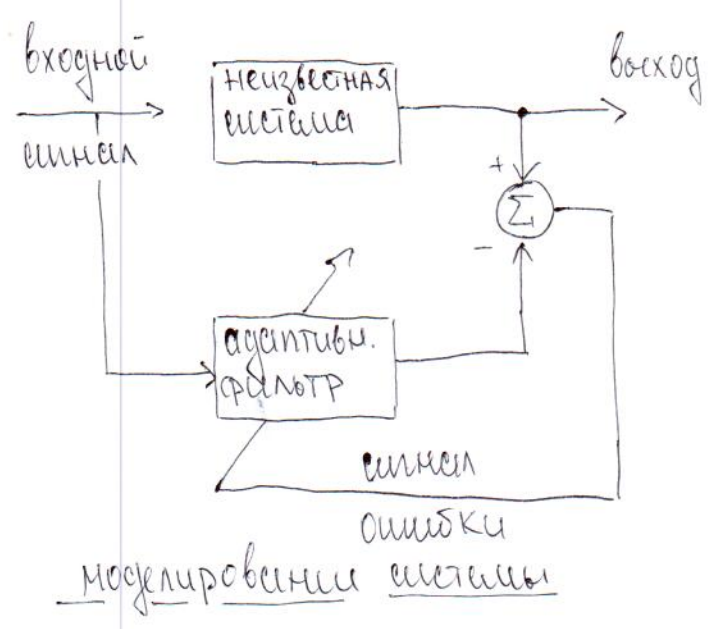 входной
сигнал
неизвестная
система
выход
+
Σ
−
адаптивн.
фильтр
сигнал
ошибки
моделировании системы